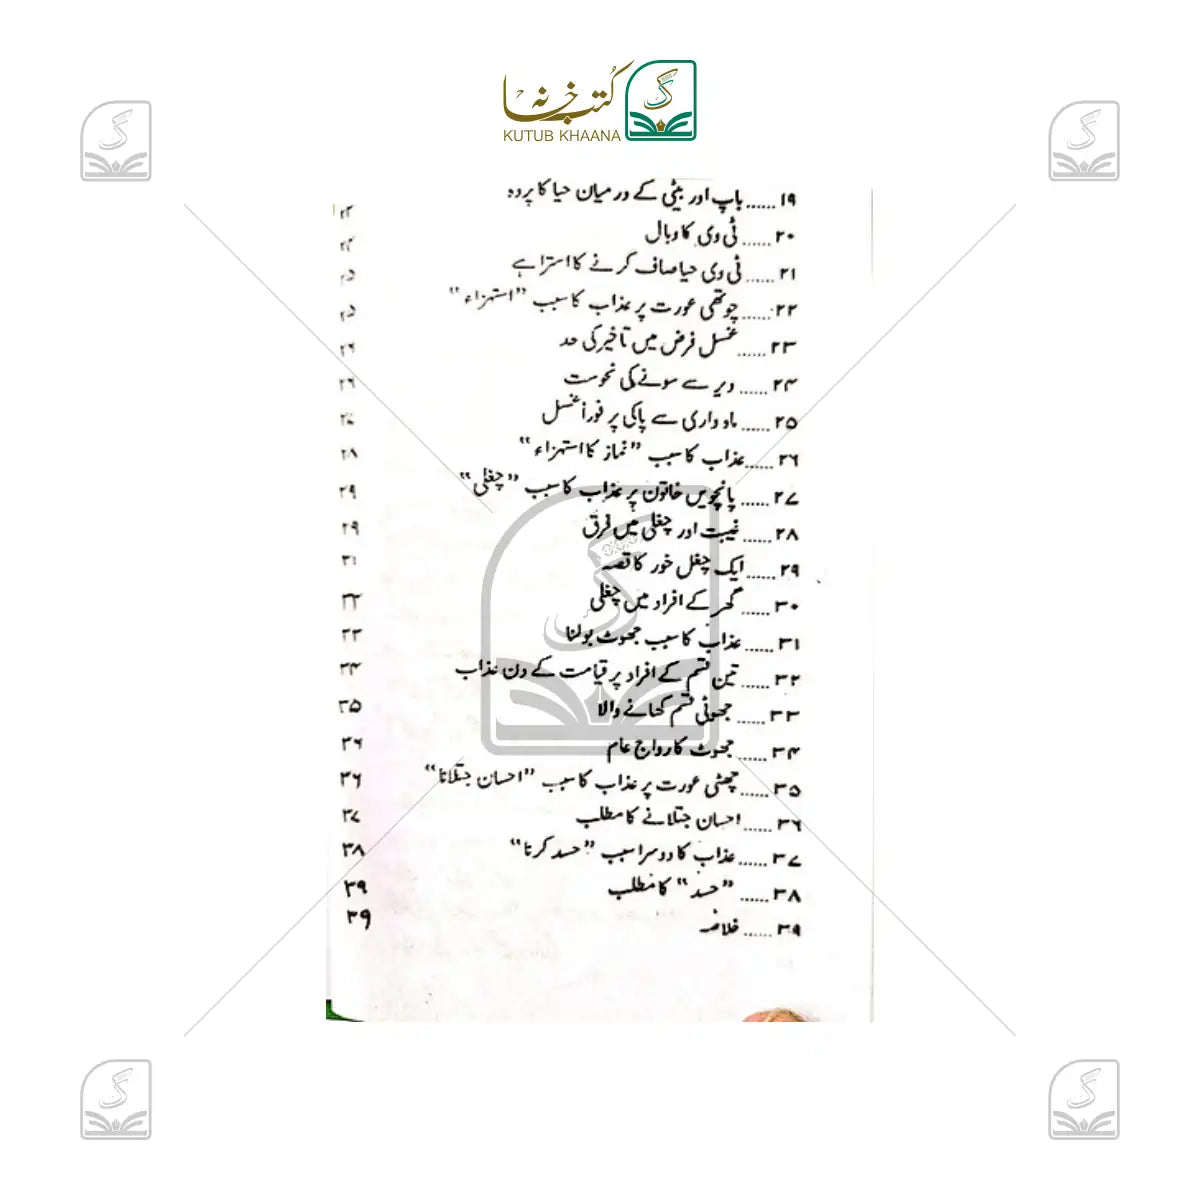 کتب خانہ
KUTUB KHAANA
۱۹ ...... باپ اور بیٹی کے درمیان حیا کا پردہ ۲۳
۲۰ ...... ٹی وی کا وبال ۲۴
۲۱ ...... ٹی وی حیا صاف کرنے کا استرا ہے ۲۵
۲۲ ...... چوتھی عورت پر عذاب کا سبب "استہزاء" ۲۵
۲۳ ...... غسل فرض میں تاخیر کی حد ۲۶
۲۴ ...... دیر سے سونے کی نحوست ۲۶
۲۵ ...... ماہواری سے پاکی پر فوراً غسل ۲۷
۲۶ ...... عذاب کا سبب "نماز کا استہزاء" ۲۸
۲۷ ...... پانچویں خاتون پر عذاب کا سبب "چغلی" ۲۹
۲۸ ...... غیبت اور چغلی میں فرق ۲۹
۲۹ ...... ایک چغل خور کا قصہ ۳۱
۳۰ ...... گھر کے افراد میں چغلی ۳۲
۳۱ ...... عذاب کا سبب جھوٹ بولنا ۳۳
۳۲ ...... تین قسم کے افراد پر قیامت کے دن عذاب ۳۴
۳۳ ...... جھوٹی قسم کھانے والا ۳۵
۳۴ ...... جھوٹ کا رواج عام ۳۶
۳۵ ...... چھٹی عورت پر عذاب کا سبب "احسان جتلانا" ۳۶
۳۶ ...... احسان جتلانے کا مطلب ۳۷
۳۷ ...... عذاب کا دوسرا سبب "حسد کرنا" ۳۸
۳۸ ...... "حسد" کا مطلب ۳۹
۳۹ ...... خلاصہ ۳۹